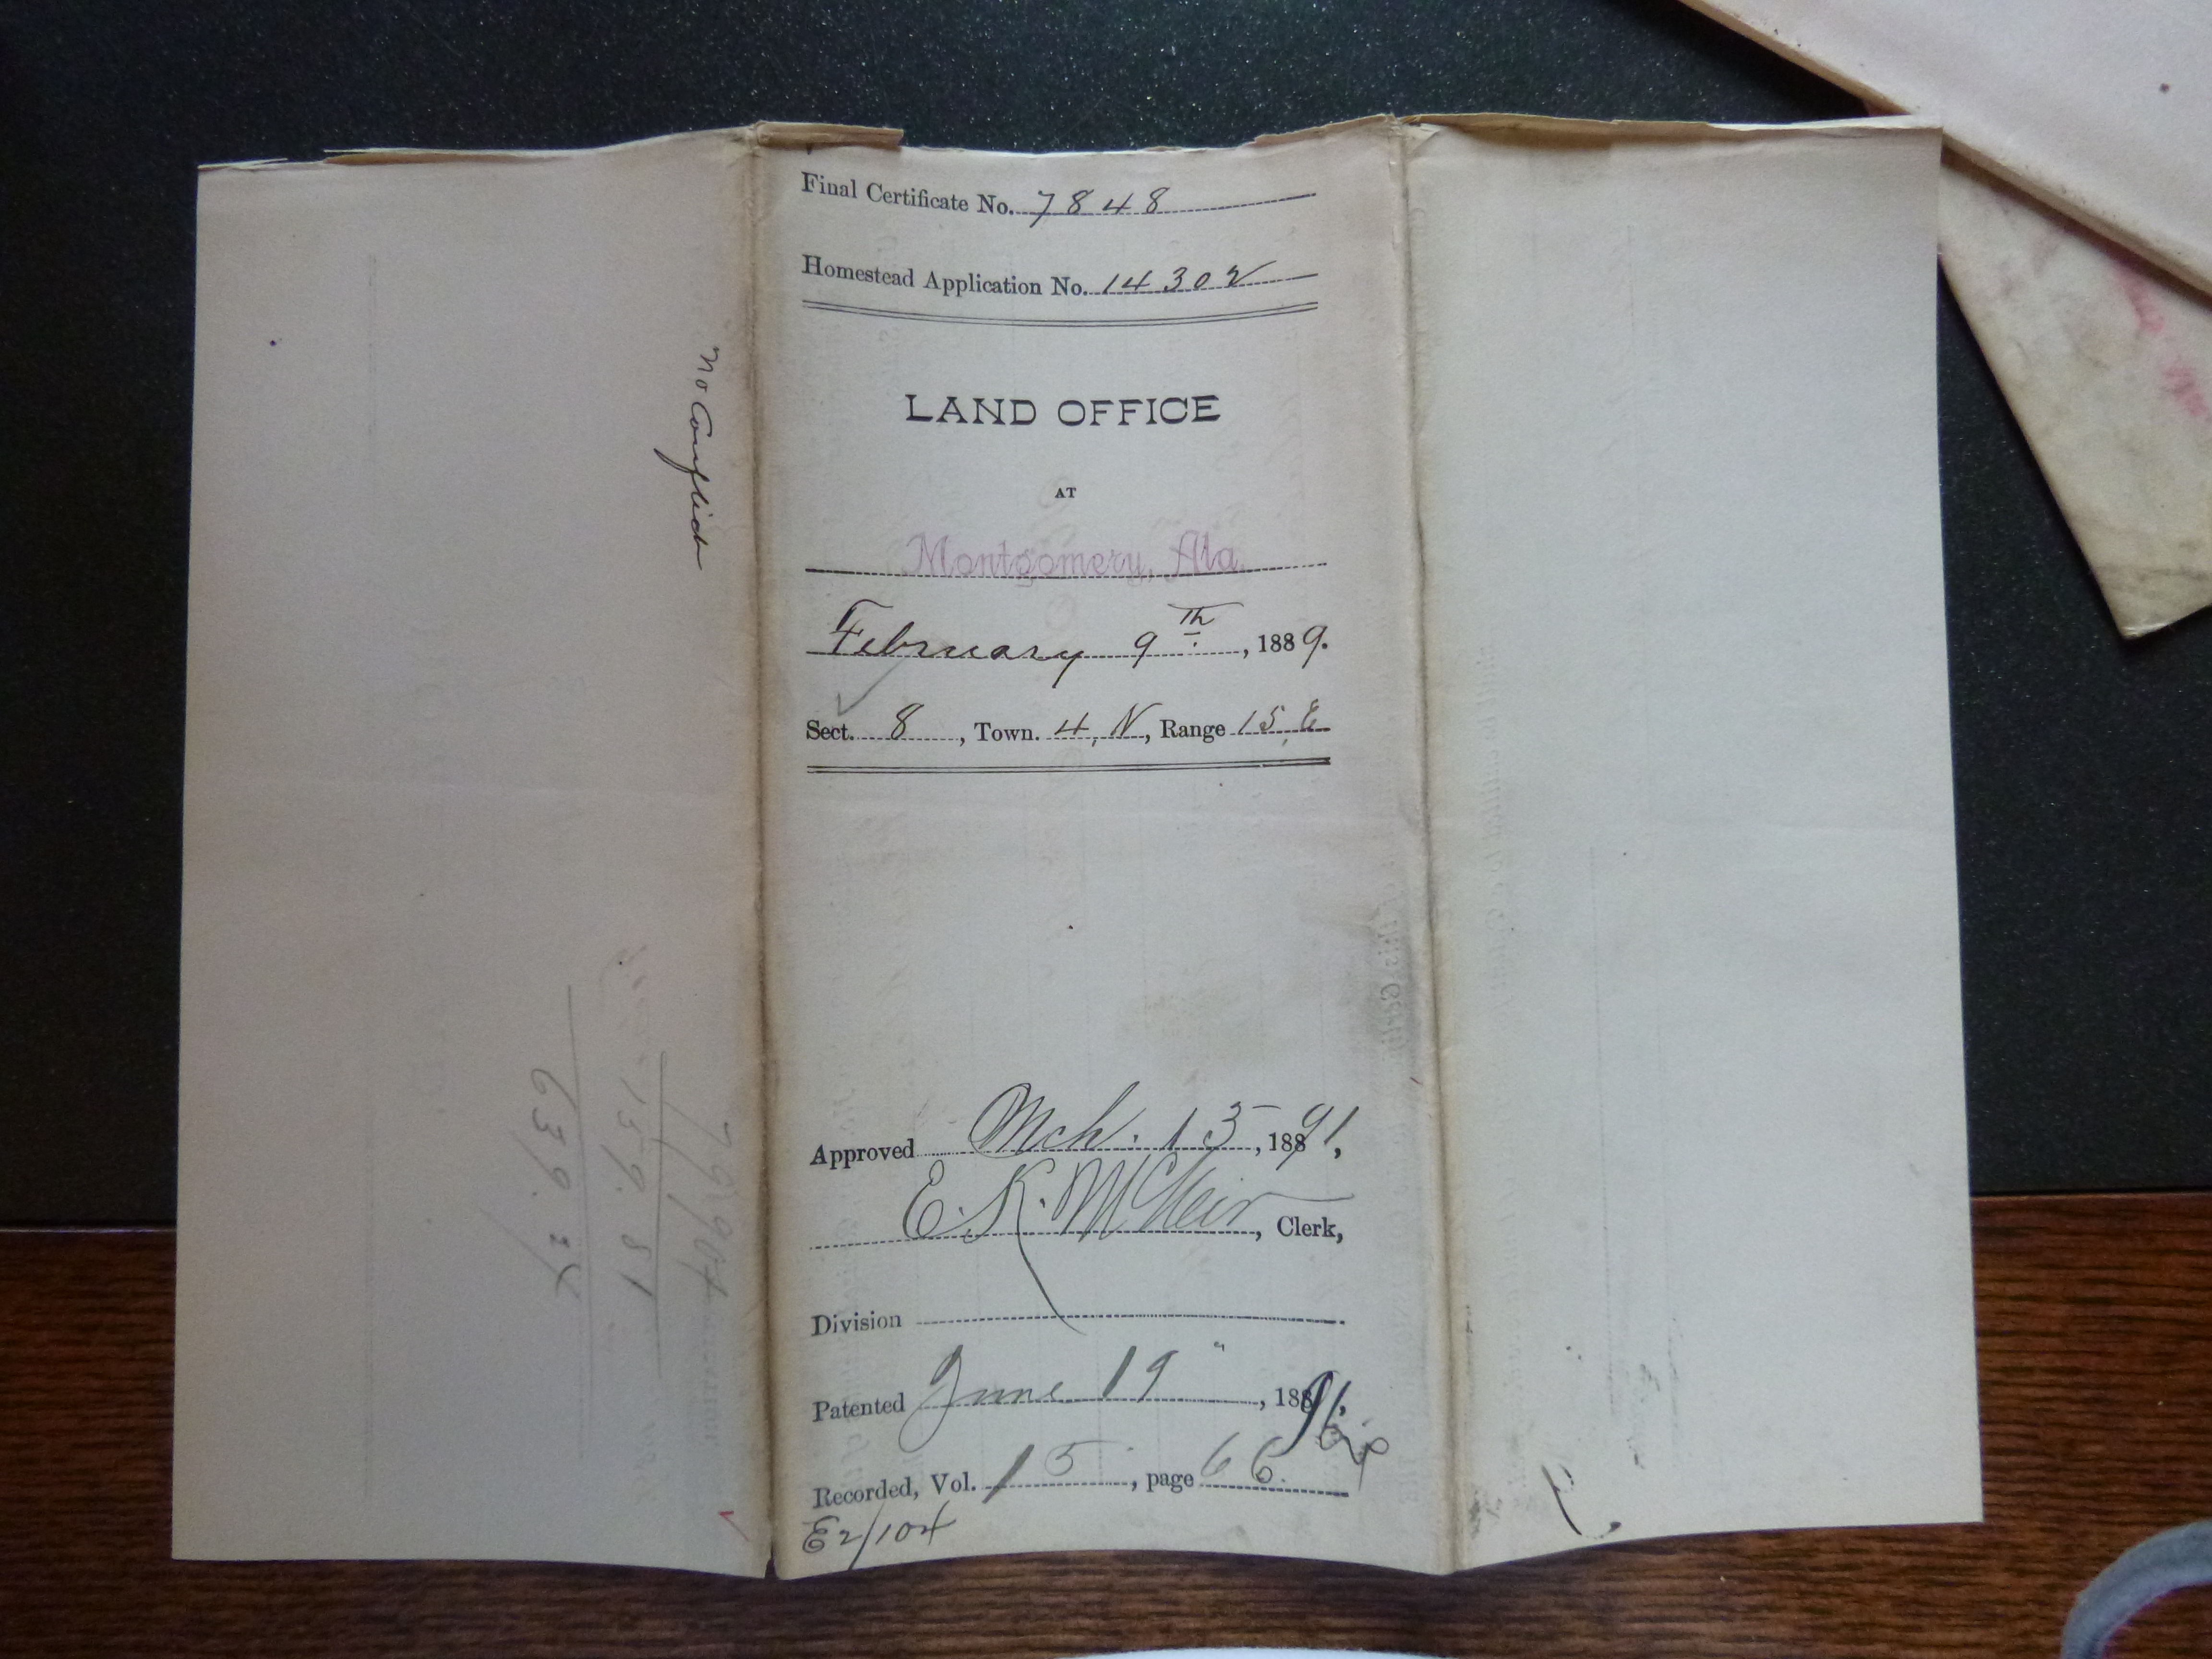 No Conflict
79904
159.81
639.24
Final Certificate No. 7848
Homestead Application No. 14302
LAND OFFICE
AT
Montgomery, Ala.
February 9th, 1889.
Sect. 8, Town. 4, N, Range 15, E
Approved Mch. 13, 1891,
E. K. , Clerk,
Division
Patented June 19", 1891,
Recorded, Vol. 15, page 66.
E2/104